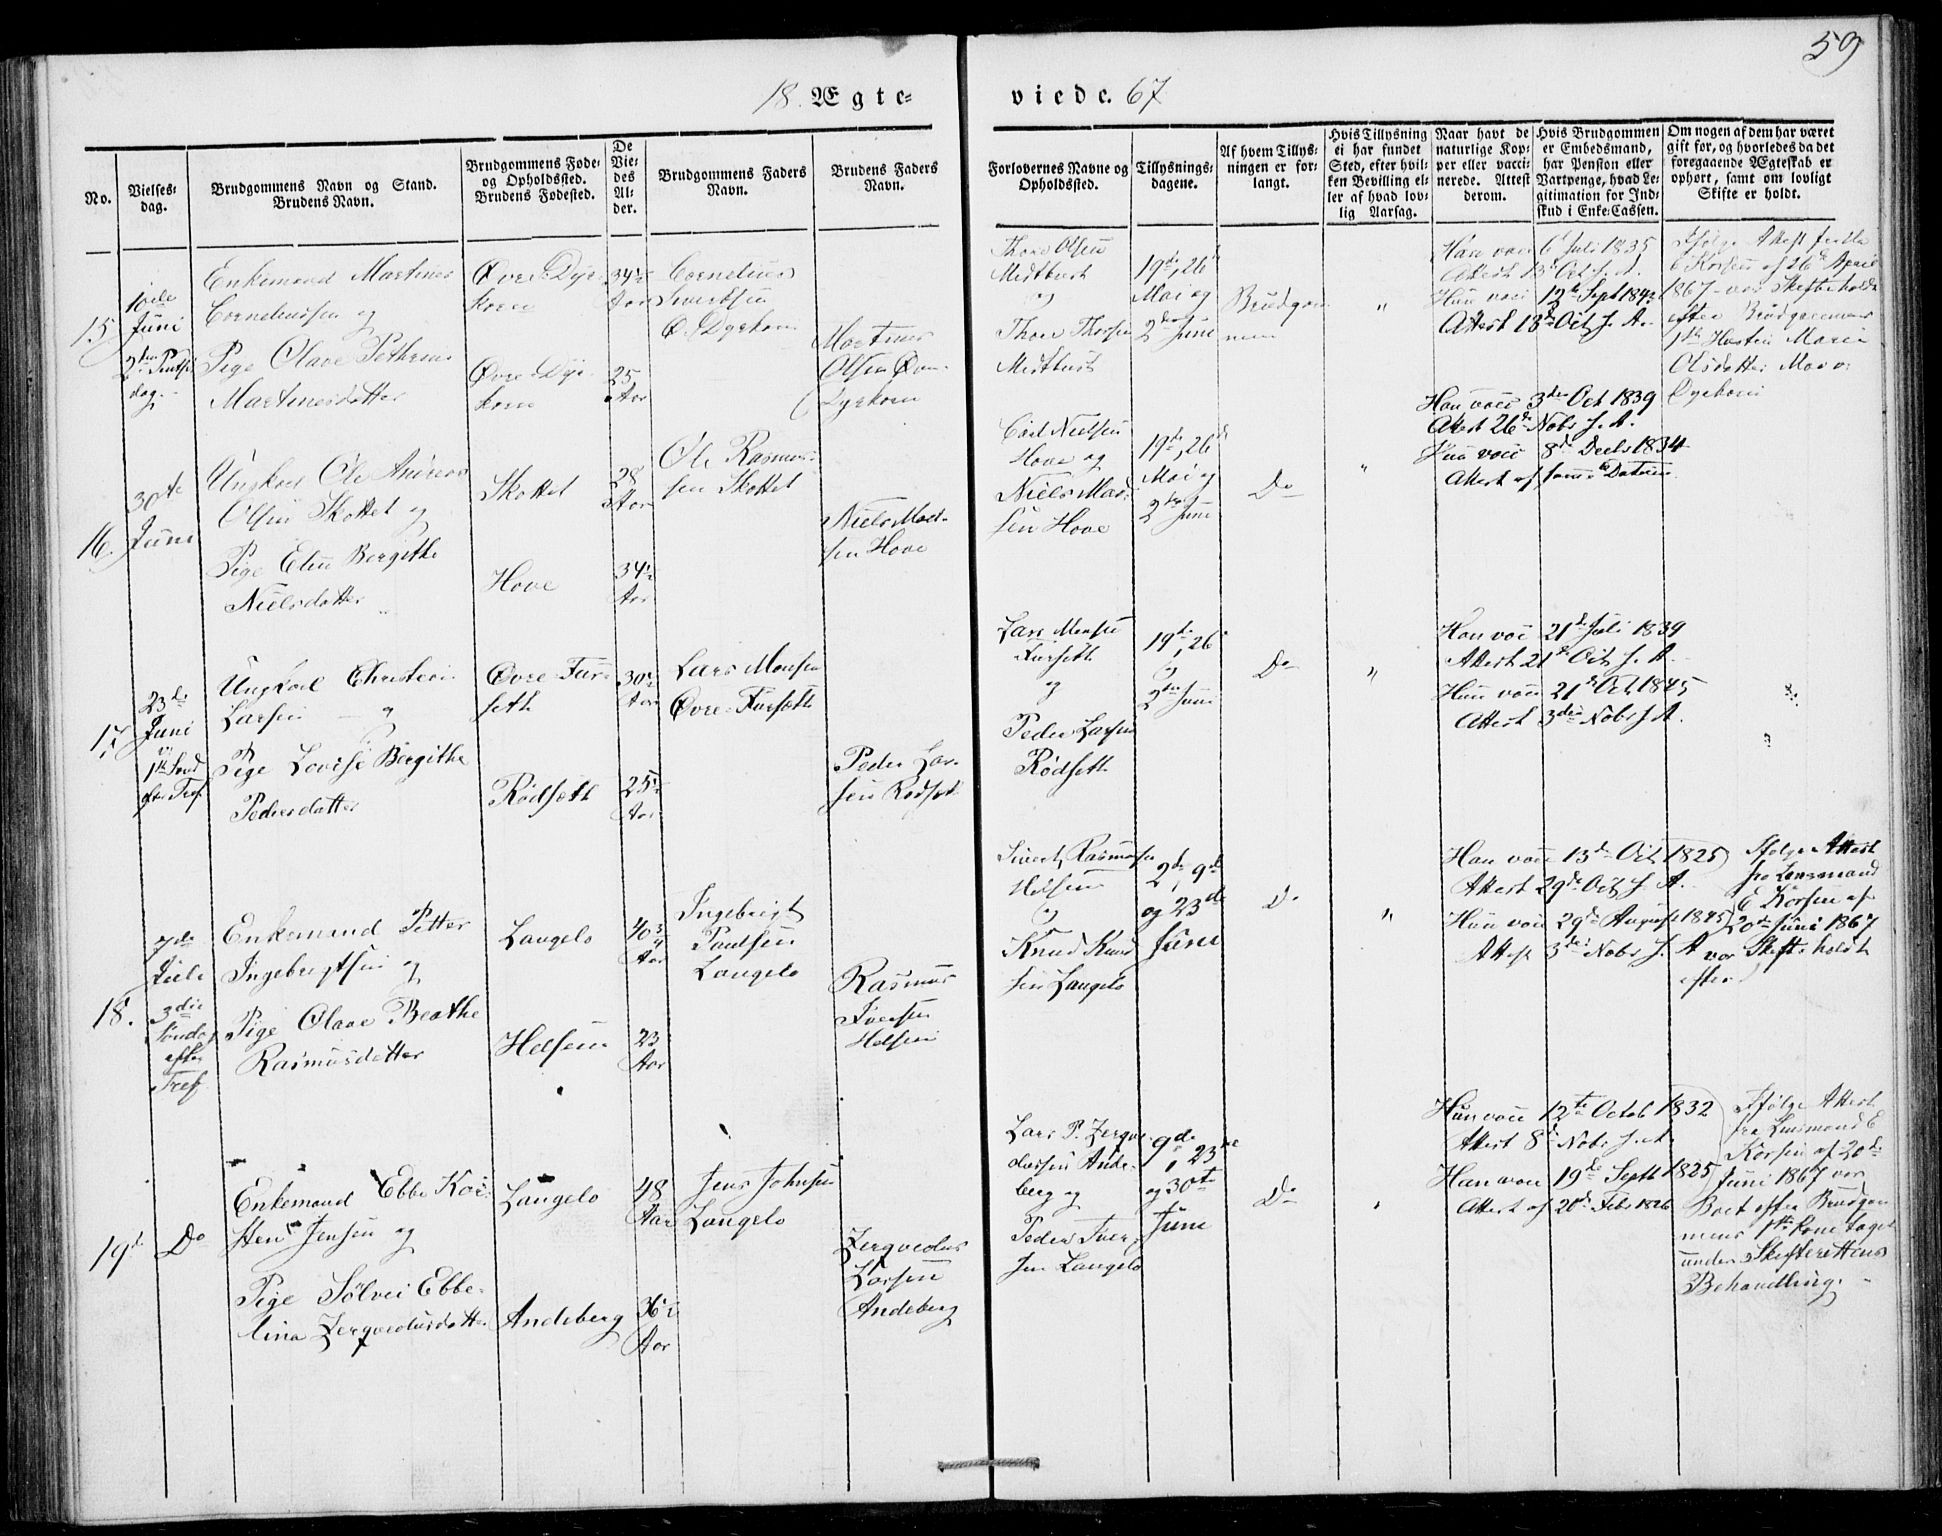 59
18. Ægte-
viede. 67
No.
Vielses-
dag.
Brudgommens Navn og Stand.
Brudens Navn.
Brudgommens Føde-
og Opholdssted.
Brudens Fødested.
De
Vie-
des
Al-
der.
Brudgommens Faders
Navn.
Brudens Faders
Navn.
Forlovernes Navne og
Opholdssted.
Tillysnings-
dagene.
Af hvem Tillys-
ningen er for-
langt.
Hvis Tillysning
ei har fundet
Sted, efter hvil-
ken Bevilling el-
ler af hvad lov-
lig Aarsag.
Naar havt de
naturlige Kop-
per eller vacci-
nerede. Attest
derom.
Hvis Brudgommen
er Embedsmand,
har Pension eller
Vartpenge, hvad Le-
gitimation for Ind-
skud i Enke-Cassen.
Om nogen af dem har været
gift før, og hvorledes da det
foregaaende Ægteskab er
ophørt, samt om lovligt
Skifte er holdt.
15
10de
Juni
2den Pintse
dag.
Enkemand Martinus
Corneliussen og
Pige Olave Pethrine
Martinusdatter
Øvre Dyr-
korn
Øvre Dyr-
korn
34½
Aar
25
Aar
Cornelius
Sivertsen
Ø. Dyrkorn
Martinus
Olsen Øvre
Dyrkorn
Thore Olsen
Midthust
og
Thore Thorsen
Midthust
19de, 26de
Mai og
2den Juni
Brudgom
men
"
Han vacc 6te Juli 1835
Attest 13de Oct. s. A.
Hun vacc 12te Sept 1842
Attest 18de Oct. s. A.
Ifølge Attest fra
E Korsen af 26de April
1867 var Skifte holdt
efter Brudgommens
1ste Hustru Marie
Olsdatter
16.
30te
Juni
Ungkarl Ole Andreas
Olsen Skottet og
Pige Elen Bergithe
Nielsdatter
Skottet
Hove
28
Aar
34½
Aar
Ole Rasmus-
sen Skottet
Niels Mad-
sen Hove
Carl Nielsen
Hove og
Niels Mad-
sen Hove
19de, 26de
Mai og
2den Juni
Do
"
Han vacc 3die Oct 1839
Attest 26de Nobr s. A.
Hun vacc 8de Decbr 1834
Attest af samme Datum
17.
23de
Juni
1ste Sønd
efter Tref.
Ungkarl Christian
Larsen og
Pige Lovise Bergithe
Pedersdatter
Øvre Fur-
seth
Rødseth
30½
Aar
25½
Aar
Lars Monsen
Øvre-Furseth
Peder Lar-
sen Rødseth
Lars Monsen
Furseth
og
Peder Larsen
Rødseth
19de, 26de
og
2den Juni
Do
"
Han vacc 21de Juli 1839
Attest 21de Oct. s. A.
Hun vacc 21de Oct. 1845
Attest 3die Nobr s. A.
18.
7de
Juli
3die
Søndag
efter
Tref
Enkemand Petter
Ingebrigtsen og
Pige Olave Beathe
Rasmusdatter
Langelo
Helsem
40¾
Aar
23
Aar
Ingebrigt
Paulsen
Langelo
Rasmus
Iversen
Helsem
Sivert Rasmusen
Helsem
og
Knud Knud
sen Langelo
2de, 9de
og 23de
Juni
Do
"
Han vacc 13de Oct. 1825
Attest 29de Oct. s. A.
Hun vacc 29de August 1845
Attest 3die Nobr s. A
Ifølge Attest
fra Lensmand
E Korsen af
20de Juni 1867
var Skifte holdt
efter
19de
Do
Enkemand Ebbe Kar-
sten Jensen og
Pige Sølvei Ebbe-
lina Zergvedusdatter
Langelo
Andeberg
48
Aar
36½
Aar
Jens Johnsen
Langelo
Zergvedus
Larsen
Andeberg
Lars P. Zergve-
dussen Ande-
berg og
Peder Iver-
sen Langelo
9de, 23de
og 30te
Juni
Do
"
Hun vacc 12te Octob 1832
Attest 8de Nobr s. A.
Han vacc 19de Septb 1825
Attest af 20de Febr 1826
Ifølge Attest
fra Lensmand E
Korsen af 20de
Juni 1867 var
Boet efter Brudgom
mens 1ste Kone taget
under Skifterettens
Behandling.